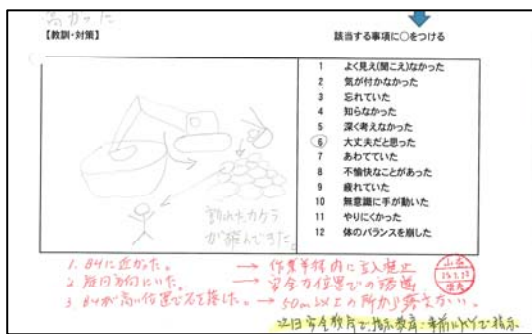 高かった
【教訓・対策】
該当する事項に○をつける
1 よく見え(聞こえ)なかった
2 気が付かなかった
3 忘れていた
4 知らなかった
5 深く考えなかった
6 大丈夫だと思った
7 あわてていた
8 不愉快なことがあった
9 疲れていた
10 無意識に手が動いた
11 やりにくかった
12 体のバランスを崩した
割れたカケラ
が飛んできた。
1. BHに近かった。 → 作業半径内に立入禁止
2. 旋回方向にいた。 → 安全な位置での誘導
3. BHが高い位置で石を落した。 → 50cm以上の所から
次回安全教育で指示教育:事前にKYで指示